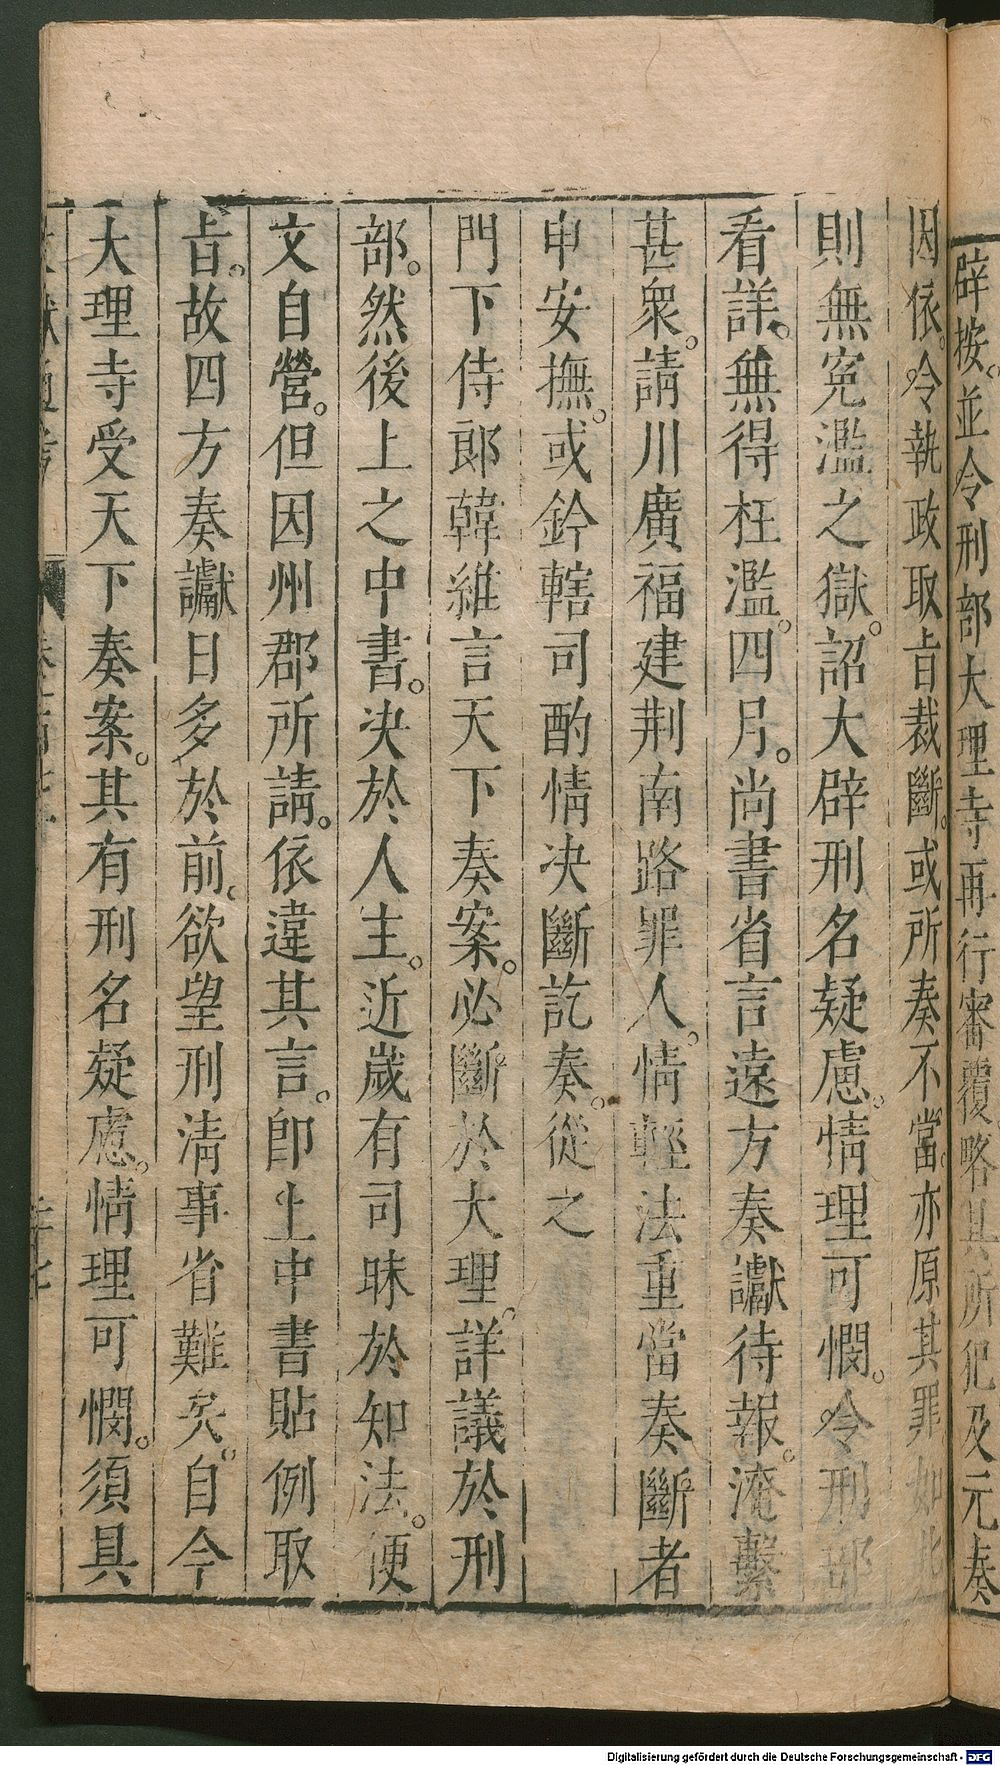 辟按。並令刑部大理寺再行審覆。略具所犯及元奏
因依。令執政取㫖裁斷。或所奏不當。亦原其罪。如此
則無寃濫之獄。詔大辟刑名疑慮。情理可憫。令刑部
看詳。無得枉濫。四月。尚書省言遠方奏讞待報。淹繫
甚衆。請川廣福建荆南路罪人。情輕法重當奏斷者
申安撫。或鈐轄司酌情決斷訖奏。從之
門下侍郎韓維言天下奏案。必斷於大理。詳議於刑
部。然後上之中書。決於人主。近歲有司昧於知法。便
文自營。但因州郡所請。依違其言。即上中書貼例取
㫖。故四方奏讞日多於前。欲望刑淸事省難矣。自今
大理寺受天下奏案。其有刑名疑慮。情理可憫。須具
文獻通考
Digitalisierung gefördert durch die Deutsche Forschungsgemeinschaft - DFG